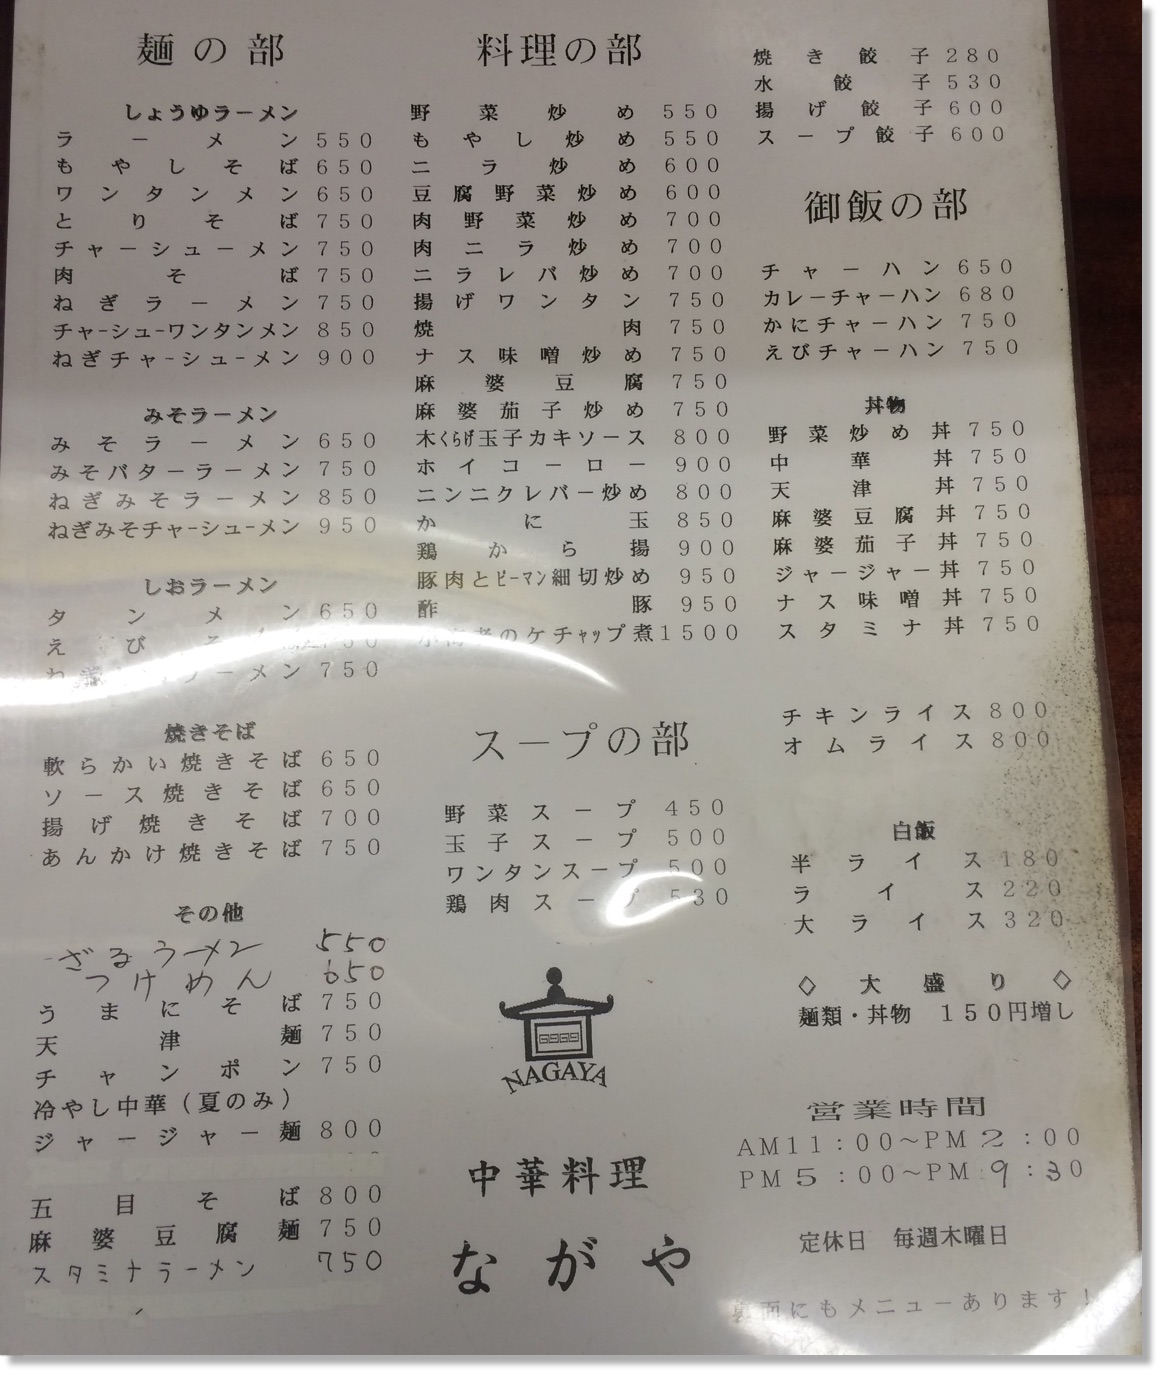 麺の部
しょうゆラーメン
ラーメン 550
もやしそば 650
ワンタンメン 650
とりそば 750
チャーシューメン 750
肉そば 750
ねぎラーメン 750
チャーシューワンタンメン 850
ねぎチャーシューメン 900
みそラーメン
みそラーメン 650
みそバターラーメン 750
ねぎみそラーメン 850
ねぎみそチャーシューメン 950
しおラーメン
タンメン 650
えびそ 750
ラーメン 750
焼きそば
軟らかい焼きそば 650
ソース焼きそば 650
揚げ焼きそば 700
あんかけ焼きそば 750
その他
ざるラーメン 550
つけめん 650
うまにそば 750
天津麺 750
チャンポン 750
冷やし中華(夏のみ)
ジャージャー麺 800
五目そば 800
麻婆豆腐麺 750
スタミナラーメン 750
料理の部
野菜炒め 550
もやし炒め 550
ニラ炒め 600
豆腐野菜炒め 600
肉野菜炒め 700
肉ニラ炒め 700
ニラレバ炒め 700
揚げワンタン 750
焼肉 750
ナス味噌炒め 750
麻婆豆腐 750
麻婆茄子炒め 750
木くらげ玉子カキソース 800
ホイコーロー 900
ニンニクレバー炒め 800
かに玉 850
鶏から揚 900
豚肉とピーマン細切炒め 950
酢豚 950
のケチャップ煮 1500
スープの部
野菜スープ 450
玉子スープ 500
ワンタンスープ 500
鶏肉スープ 530
NAGAYA
中華料理
ながや
焼き餃子 280
水餃子 530
揚げ餃子 600
スープ餃子 600
御飯の部
チャーハン 650
カレーチャーハン 680
かにチャーハン 750
えびチャーハン 750
丼物
野菜炒め丼 750
中華丼 750
天津丼 750
麻婆豆腐丼 750
麻婆茄子丼 750
ジャージャー丼 750
ナス味噌丼 750
スタミナ丼 750
チキンライス 800
オムライス 800
白飯
半ライス 180
ライス 220
大ライス 320
◇大盛り◇
麺類・丼物 150円増し
営業時間
AM11:00~PM2:00
PM5:00~PM9:30
定休日 毎週木曜日
裏面にもメニューあります!